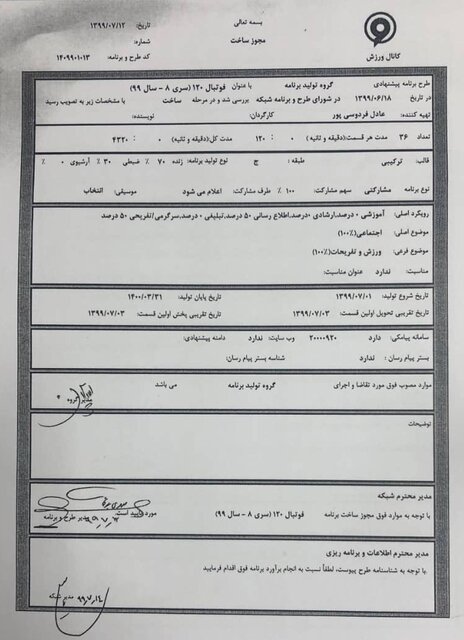 بسمه تعالی
مجوز ساخت
تاریخ: ۱۳۹۹/۰۷/۱۲
شماره:
کد طرح و برنامه: ۱۴۰۹۹۰۱۰۱۳
کانال ورزش
طرح برنامه پیشنهادی گروه تولید برنامه با عنوان فوتبال ۱۲۰ (سری ۸ - سال ۹۹)
در تاریخ ۱۳۹۹/۰۶/۱۸ در شورای طرح و برنامه شبکه بررسی شد و در مرحله ساخت با مشخصات زیر به تصویب رسید
تهیه کننده: عادل فردوسی پور کارگردان: نویسنده:
تعداد ۳۶ مدت هر قسمت:(دقیقه و ثانیه) ۰ : ۱۲۰ مدت کل:(دقیقه و ثانیه) ۰ : ۴۳۲۰
قالب: ترکیبی طبقه: ج نوع تولید برنامه: زنده ۷۰ ٪ ضبطی ۳۰ ٪ آرشیوی ۰ ٪
نوع برنامه مشارکتی سهم مشارکت: ۱۰۰ ٪ طرف مشارکت: اعلام می شود موسیقی: انتخاب
رویکرد اصلی: آموزشی ۰ درصد,ارشادی ۰درصد,اطلاع رسانی ۵۰ درصد,تبلیغی ۰درصد,سرگرمی/تفریحی ۵۰ درصد
موضوع اصلی: اجتماعی(۱۰۰٪)
موضوع فرعی: ورزش و تفریحات(۱۰۰٪)
مناسبت: ندارد عنوان مناسبت:
تاریخ شروع تولید: ۱۳۹۹/۰۷/۰۱ تاریخ پایان تولید: ۱۴۰۰/۰۳/۳۱
تاریخ تقریبی تحویل اولین قسمت: ۱۳۹۹/۰۷/۰۳ تاریخ تقریبی پخش اولین قسمت: ۱۳۹۹/۰۷/۰۳
سامانه پیامکی: دارد ۲۰۰۰۰۹۲۰ وب سایت: ندارد دامنه پیشنهادی:
بستر پیام رسان: ندارد شناسه بستر پیام رسان:
موارد مصوب فوق مورد تقاضا و اجرای گروه تولید برنامه می باشد
مدیر گروه
توضیحات
مدیر محترم شبکه
با توجه به موارد فوق مجوز ساخت برنامه فوتبال ۱۲۰ (سری ۸ - سال ۹۹) مورد تایید است.
مدیر طرح و برنامه
مدیر محترم اطلاعات و برنامه ریزی
با توجه به شناسنامه طرح پیوست، لطفاً نسبت به انجام برآورد برنامه فوق اقدام فرمایید.
مدیر شبکه